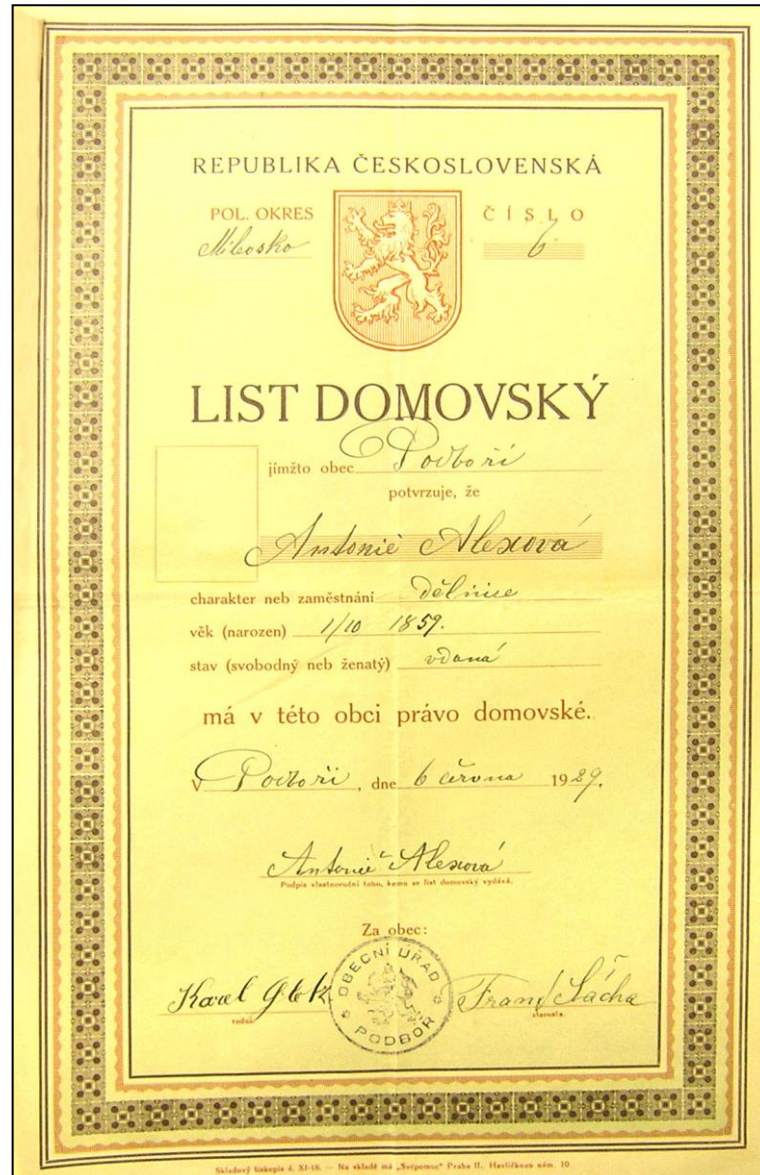 REPUBLIKA ČESKOSLOVENSKÁ
POL. OKRES ČÍSLO
Milevsko 6
LIST DOMOVSKÝ
jímžto obec Podboří
potvrzuje, že
Antonie Alexová
charakter neb zaměstnání dělnice
věk (narozen) 1/10 1859.
stav (svobodný neb ženatý) vdaná
má v této obci právo domovské.
V Podboří, dne 6 června 1929.
Antonie Alexová
Podpis vlastnoruční toho, komu se list domovský vydává.
Za obec:
OBECNÍ ÚŘAD
PODBOŘ
Karel
Frant Šácha
radní. starosta.
Skladový tiskopis č. XI-18. — Na skladě má „Svépomoc" Praha II., Havlíčkovo nám. 10.